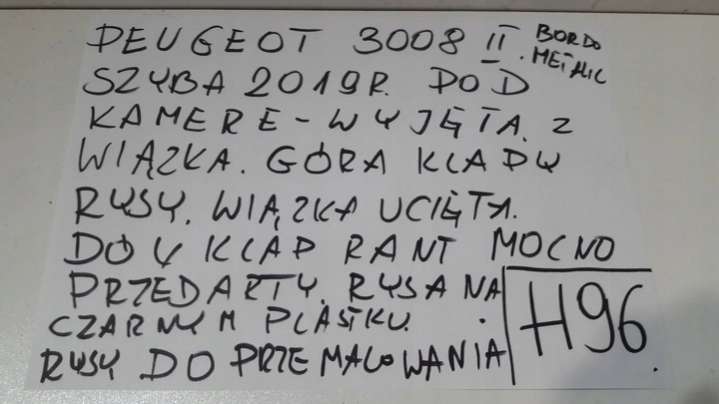 PEUGEOT 3008 II. BORDO METALIC
SZYBA 2019R. POD
KAMERE - WYJĘTA. Z
WIĄZKA. GÓRA KLAPY
RYSY. WIĄZKA UCIĘTA.
DÓŁ KLAP RANT MOCNO
PRZEDARTY. RYSA NA
CZARNYM PLASTKU.
RYSY DO PRZEMALOWANIA
H96.